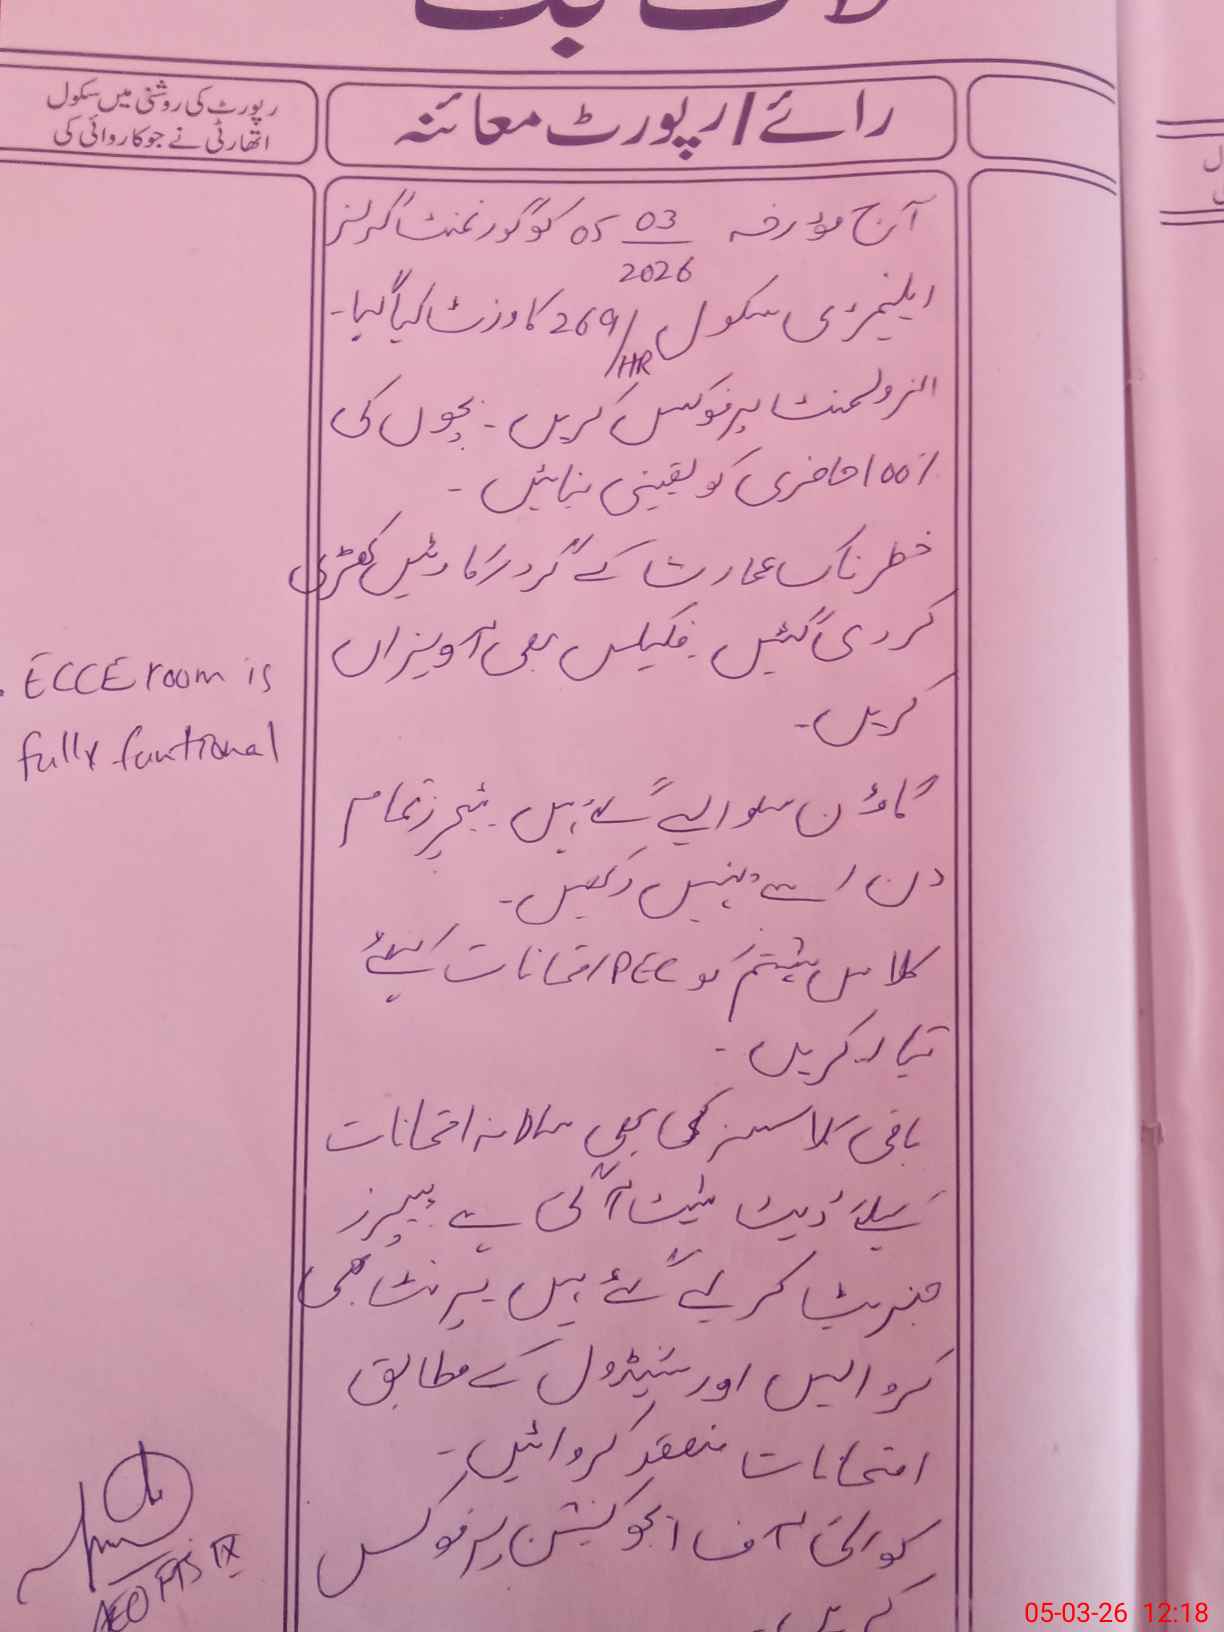 لاگ بک
رائے/رپورٹ معائنہ
رپورٹ کی روشنی میں سکول
اتھارٹی نے جو کاروائی کی
آج مؤرخہ 05 03/2026 کو گورنمنٹ گرلز
ایلیمنٹری سکول 269/HR کا وزٹ کیا گیا۔
انرولمنٹ پر فوکس کریں۔ بچوں کی
100% حاضری کو یقینی بنائیں۔
خطرناک عمارت کے گرد رکاوٹیں کھڑی
کر دی گئیں۔ فلیکس بھی آویزاں
کریں۔
گاؤن سلوا لیے گئے ہیں۔ ٹیچرز تمام
دن اسے پہنیں رکھیں۔
کلاس ہشتم کو PEC امتحانات کیلئے
تیار کریں۔
باقی کلاسسز کی بھی سالانہ امتحانات
کیلئے ڈیٹ شیٹ آ گئی ہے پیپرز
جنریٹ کر لیے گئے ہیں پرنٹ بھی
کروالیں اور شیڈول کے مطابق
امتحانات منعقد کروائیں۔
کوالٹی آف ایجوکیشن پر فوکس
کریں۔
. ECCE room is
fully funtional
AEO FTS IX
05-03-26 12:18